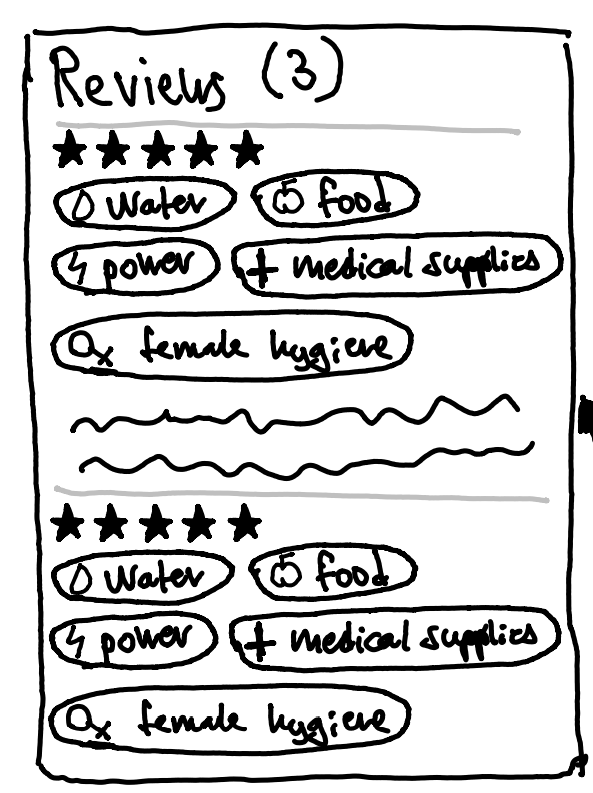 Reviews (3)
water food
power medical supplies
female hygiene
water food
power medical supplies
female hygiene